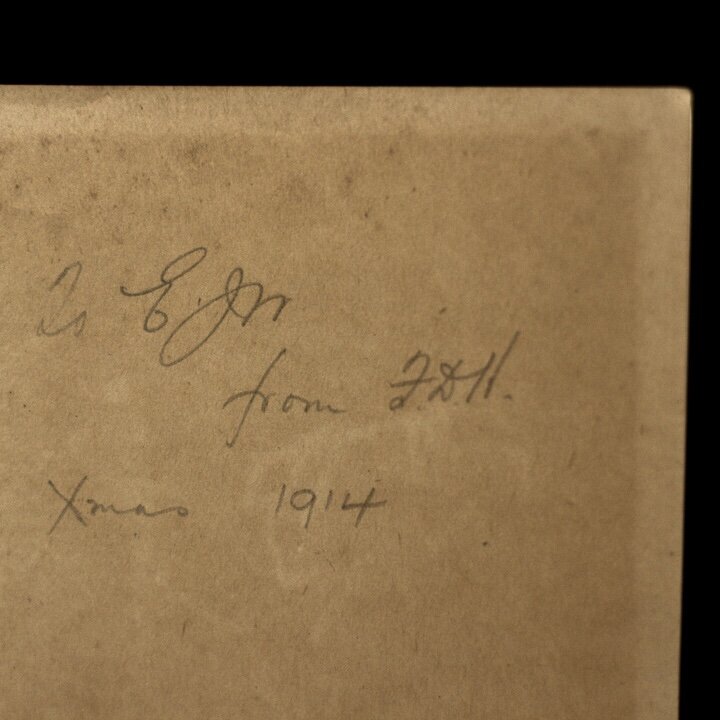 To E. J. W.
from F. D. H.
Xmas 1914